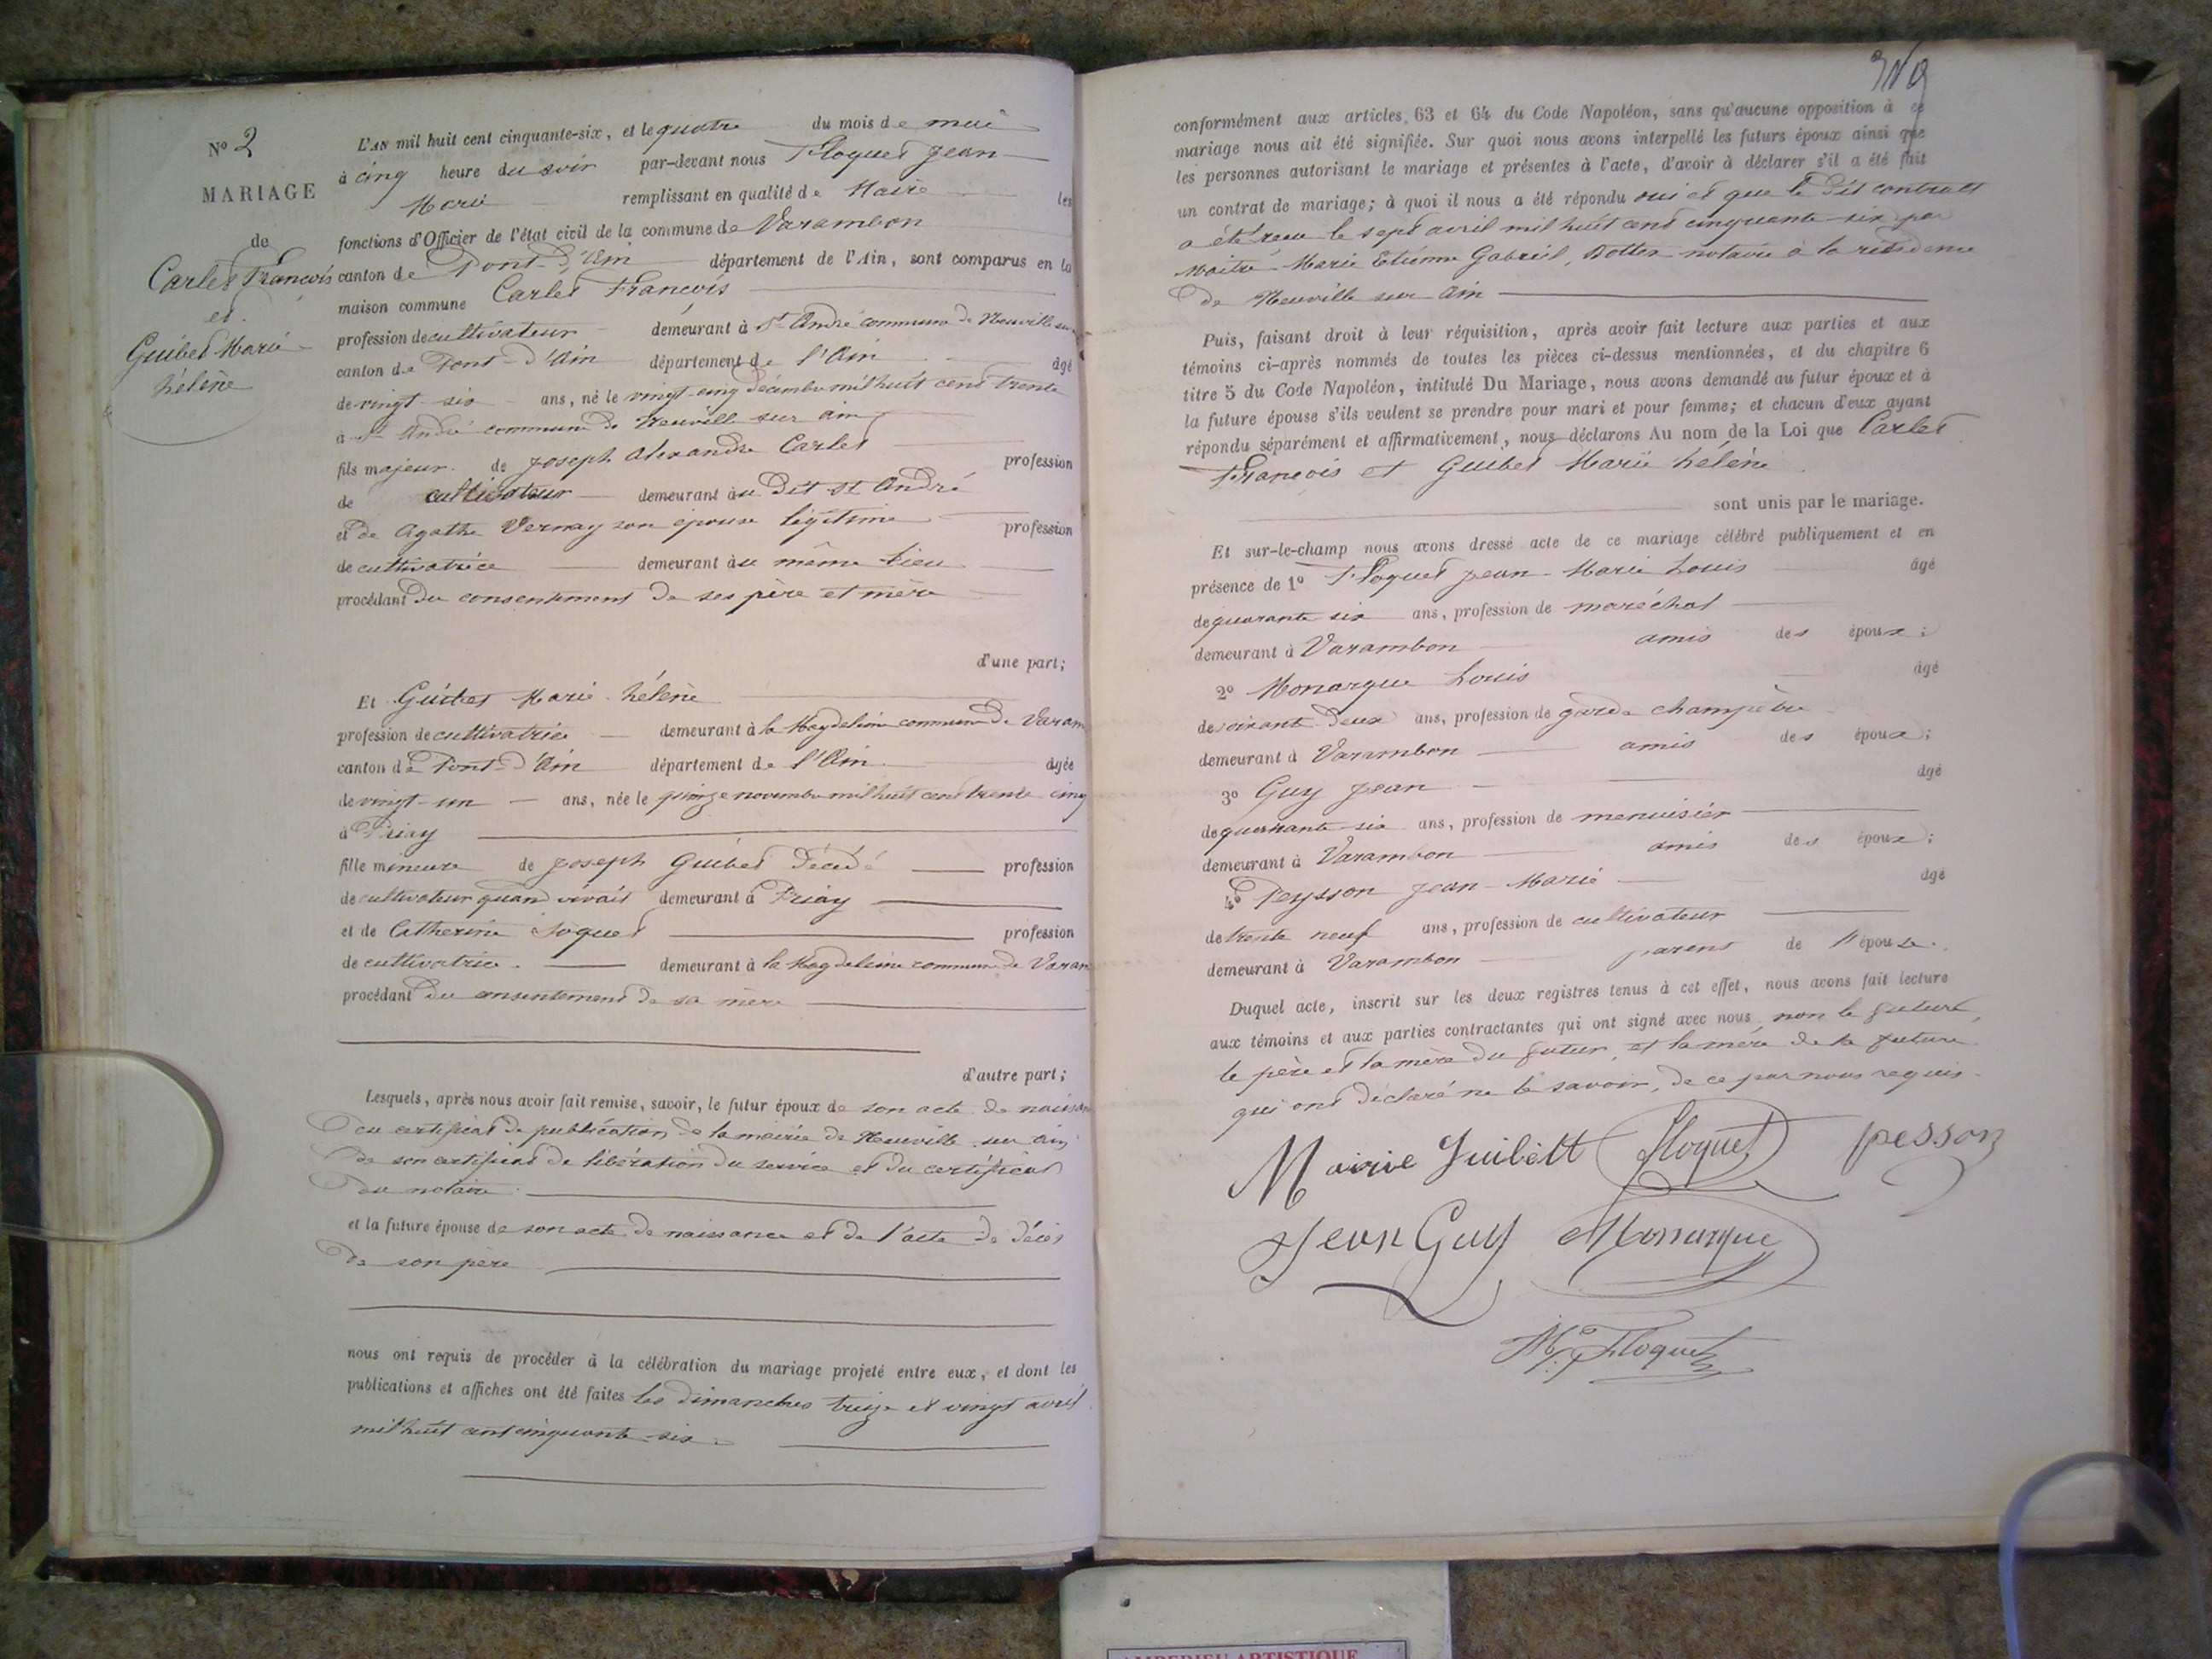 N° 2
MARIAGE
de
Carles François
et
Guibet Marie
hélène
L'AN mil huit cent cinquante-six, et le quatre du mois de mai
à cinq heure du soir par-devant nous Floquet Jean
Marie remplissant en qualité de Maire les
fonctions d'Officier de l'état civil de la commune de Varambon
canton de Pont-d'Ain département de l'Ain, sont comparus en la
maison commune Carles François
profession de cultivateur demeurant à St André commune de Neuville sur
canton de Pont-d'Ain département de l'Ain âgé
de vingt six ans, né le vingt-cinq décembre mil huit cent trente
à St André commune de Neuville sur ain
fils majeur de Joseph Alexandre Carles profession
de cultivateur demeurant au Dit St André
et de Agathe Vernay son épouse légitime profession
de cultivatrice demeurant au même lieu
procédant du consentement de ses père et mère
d'une part;
Et Guibet Marie hélène
profession de cultivatrice demeurant à la Magdeleine commune de Varam
canton de Pont-d'Ain département de l'Ain âgée
de vingt-un ans, née le quinze novembre mil huit cent trente cinq
à Priay
fille mineure de Joseph Guibet décédé profession
de cultivateur quand vivait demeurant à Priay
et de Catherine profession
de cultivatrice demeurant à la Magdeleine commune de Varam
procédant du consentement de sa mère
d'autre part;
Lesquels, après nous avoir fait remise, savoir, le futur époux de son acte de naissan
du certificat de publication de la mairie de Neuville sur ain
de son certificat de libération du service et du certificat
du notaire
et la future épouse de son acte de naissance et de l'acte de décès
de son père
nous ont requis de procéder à la célébration du mariage projeté entre eux, et dont les
publications et affiches ont été faites les dimanches treize et vingt avril
mil huit cent cinquante-six
conformément aux articles 63 et 64 du Code Napoléon, sans qu'aucune opposition à ce
mariage nous ait été signifiée. Sur quoi nous avons interpellé les futurs époux ainsi que
les personnes autorisant le mariage et présentes à l'acte, d'avoir à déclarer s'il a été fait
un contrat de mariage; à quoi il nous a été répondu oui et que le dit contrat
a été reçu le sept avril mil huit cent cinquante-six par
Maitre Marie Etienne Gabriel, notaire à la résidence
de Neuville sur Ain
Puis, faisant droit à leur réquisition, après avoir fait lecture aux parties et aux
témoins ci-après nommés de toutes les pièces ci-dessus mentionnées, et du chapitre 6
titre 5 du Code Napoléon, intitulé Du Mariage, nous avons demandé au futur époux et à
la future épouse s'ils veulent se prendre pour mari et pour femme; et chacun d'eux ayant
répondu séparément et affirmativement, nous déclarons Au nom de la Loi que Carles
François et Guibet Marie hélène
sont unis par le mariage.
Et sur-le-champ nous avons dressé acte de ce mariage célébré publiquement et en
présence de 1° Floquet Jean-Marie Louis âgé
de quarante six ans, profession de maréchal
demeurant à Varambon amis des époux;
2° Monarque Louis âgé
de soixante-deux ans, profession de garde champêtre
demeurant à Varambon amis des époux;
3° Guy Jean âgé
de quarante-six ans, profession de menuisier
demeurant à Varambon amis des époux;
4° Peysson Jean-Marie âgé
de trente neuf ans, profession de cultivateur
demeurant à Varambon parent de l'épouse.
Duquel acte, inscrit sur les deux registres tenus à cet effet, nous avons fait lecture
aux témoins et aux parties contractantes qui ont signé avec nous, non le future,
le père et la mère du futur, et la mère de la future
qui ont déclaré ne le savoir, de ce par nous requis.
Marie Guibett Floquet pesson
Jean Guy Monarque
Floquet
AMBERIEU ARTISTIQUE